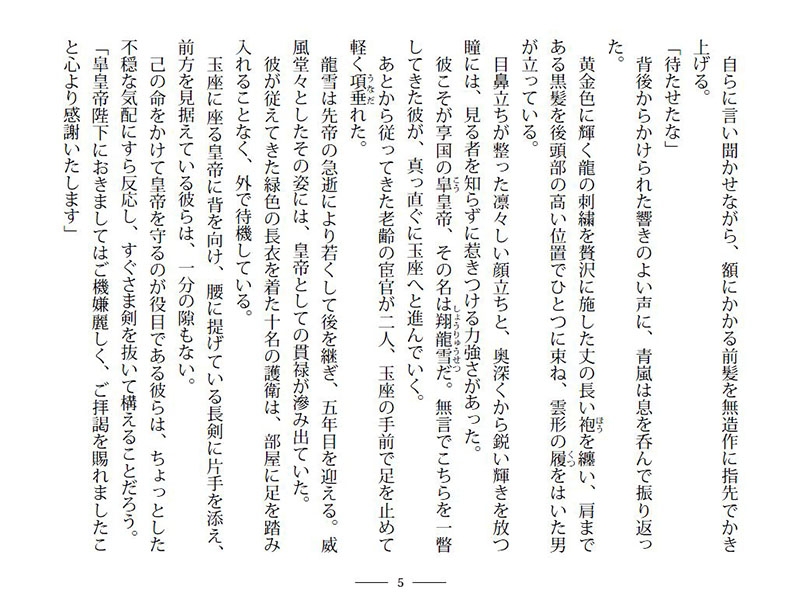 自らに言い聞かせながら、額にかかる前髪を無造作に指先でかき
上げる。
「待たせたな」
背後からかけられた響きのよい声に、青嵐は息を呑んで振り返っ
た。
黄金色に輝く龍の刺繍を贅沢に施した丈の長い袍を纏い、肩まで
ある黒髪を後頭部の高い位置でひとつに束ね、雲形の履をはいた男
が立っている。
目鼻立ちが整った凛々しい顔立ちと、奥深くから鋭い輝きを放つ
瞳には、見る者を知らずに惹きつける力強さがあった。
彼こそが享国の皐皇帝、その名は翔龍雪だ。無言でこちらを一瞥
してきた彼が、真っ直ぐに玉座へと進んでいく。
あとから従ってきた老齢の宦官が二人、玉座の手前で足を止めて
軽く項垂れた。
龍雪は先帝の急逝により若くして後を継ぎ、五年目を迎える。威
風堂々としたその姿には、皇帝としての貫禄が滲み出ていた。
彼が従えてきた緑色の長衣を着た十名の護衛は、部屋に足を踏み
入れることなく、外で待機している。
玉座に座る皇帝に背を向け、腰に提げている長剣に片手を添え、
前方を見据えている彼らは、一分の隙もない。
己の命をかけて皇帝を守るのが役目である彼らは、ちょっとした
不穏な気配にすら反応し、すぐさま剣を抜いて構えることだろう。
「皐皇帝陛下におきましてはご機嫌麗しく、ご拝謁を賜れましたこ
と心より感謝いたします」
5